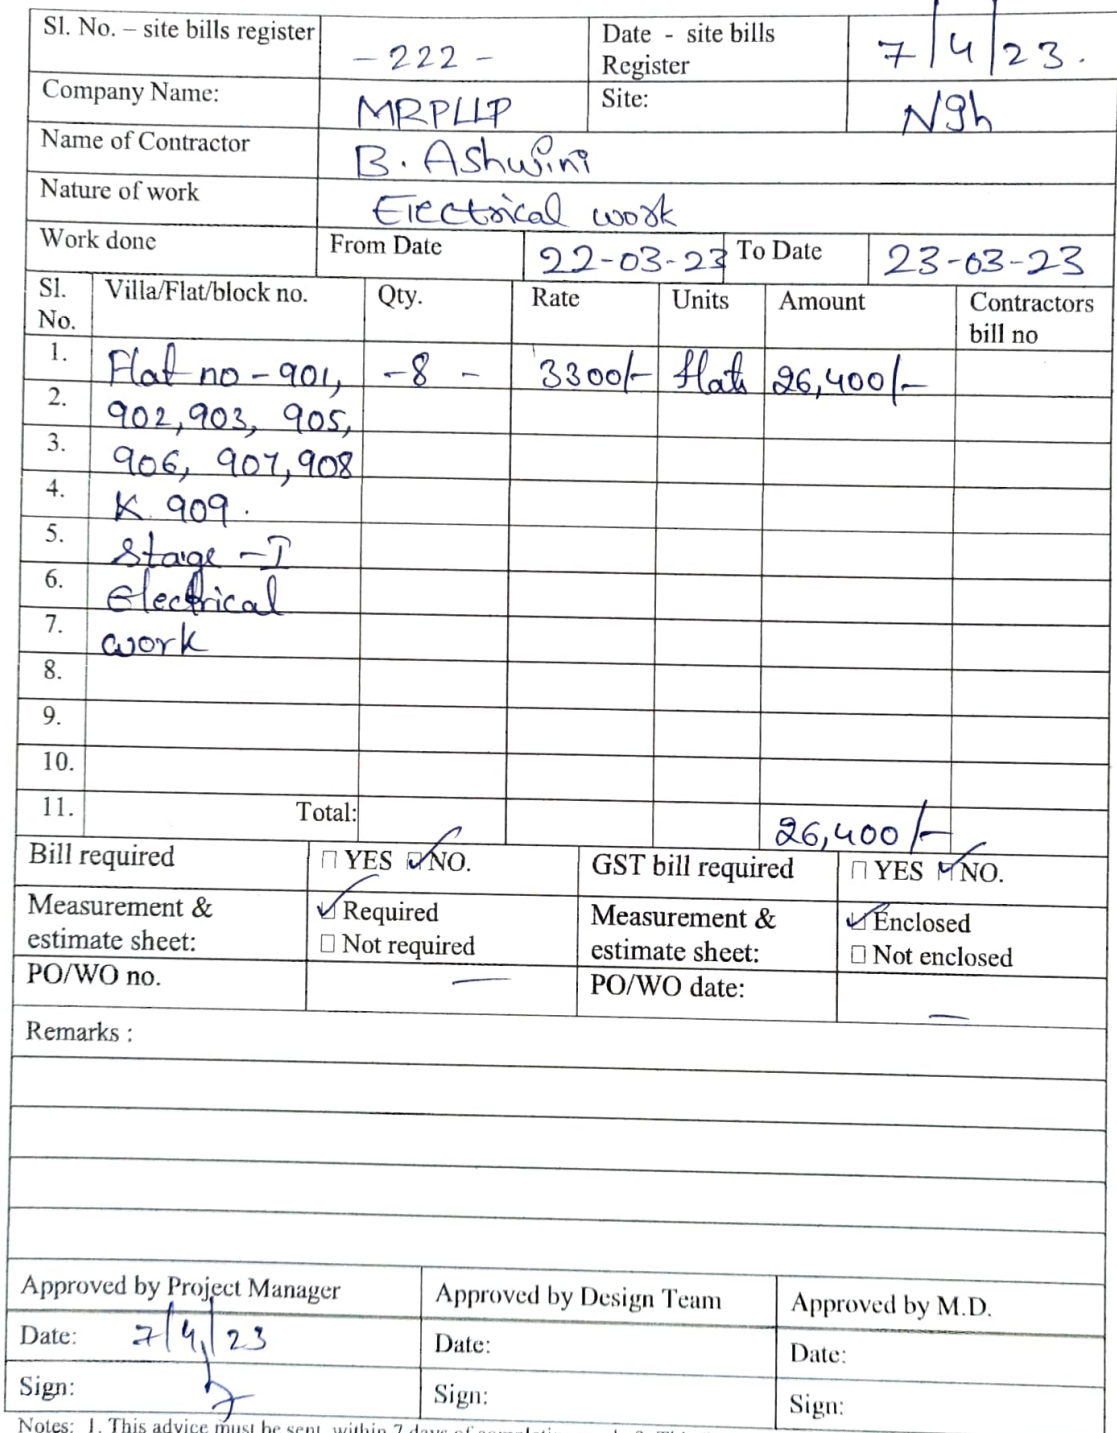 Sl. No. – site bills register -222- Date - site bills Register 7/4/23.
Company Name: MRPLLP Site: NGh
Name of Contractor B. Ashwini
Nature of work Electrical work
Work done From Date 22-03-23 To Date 23-03-23
Sl. No. Villa/Flat/block no. Qty. Rate Units Amount Contractors bill no
1. Flat no - 901, -8- 3300/- flats 26,400/-
2. 902,903, 905,
3. 906, 907,908
4. & 909.
5. Stage -I
6. Electrical
7. work
8.
9.
10.
11. Total: 26,400/-
Bill required □ YES ☑ NO. GST bill required □ YES ☑ NO.
Measurement & estimate sheet: ☑ Required □ Not required Measurement & estimate sheet: ☑ Enclosed □ Not enclosed
PO/WO no. — PO/WO date: —
Remarks :
Approved by Project Manager Approved by Design Team Approved by M.D.
Date: 7/4/23 Date: Date:
Sign: Sign: Sign:
Notes: 1. This advice must be sent within 7 days of